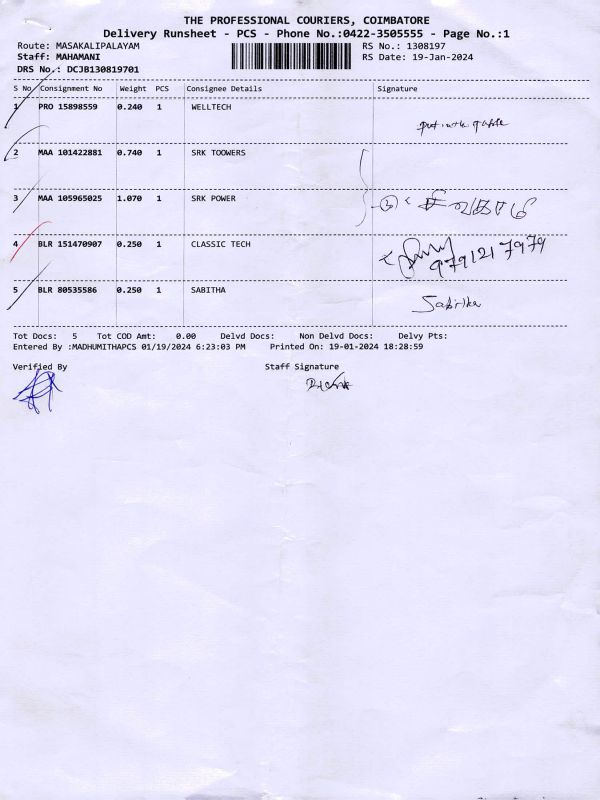 THE PROFESSIONAL COURIERS, COIMBATORE
Delivery Runsheet - PCS - Phone No.:0422-3505555 - Page No.:1
Route: MASAKALIPALAYAM RS No.: 1308197
Staff: MAHAMANI RS Date: 19-Jan-2024
DRS No.: DCJB130819701
S No Consignment No Weight PCS Consignee Details Signature
1 PRO 15898559 0.240 1 WELLTECH
2 MAA 101422881 0.740 1 SRK TOOWERS
3 MAA 105965025 1.070 1 SRK POWER
4 BLR 151470907 0.250 1 CLASSIC TECH
9791217979
5 BLR 80535586 0.250 1 SABITHA
Tot Docs: 5 Tot COD Amt: 0.00 Delvd Docs: Non Delvd Docs: Delvy Pts:
Entered By :MADHUMITHAPCS 01/19/2024 6:23:03 PM Printed On: 19-01-2024 18:28:59
Verified By Staff Signature